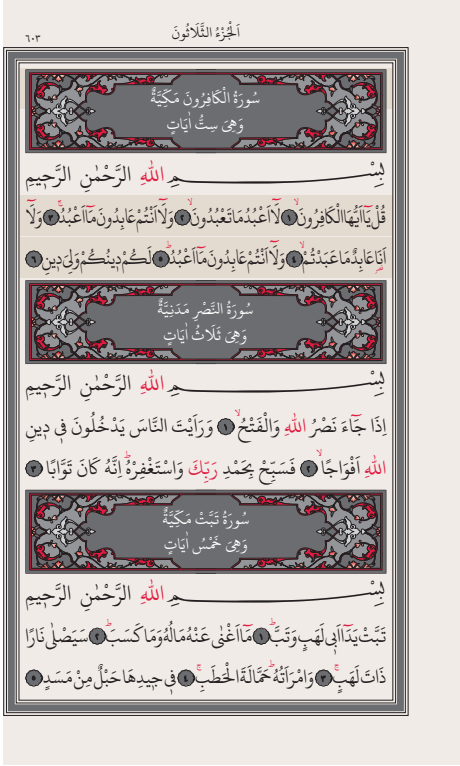 اَلْجُزْءُ الثَّلَاثُونَ
٦٠٣
سُورَةُ الْكَافِرُونَ مَكِّيَّةٌ
وَهِيَ سِتُّ اٰيَاتٍ
بِسْمِ اللهِ الرَّحْمٰنِ الرَّحِيمِ
قُلْ يَٓا اَيُّهَا الْكَافِرُونَۙ ١ لَٓا اَعْبُدُ مَا تَعْبُدُونَۙ ٢ وَلَٓا اَنْتُمْ عَابِدُونَ مَٓا اَعْبُدُۚ ٣ وَلَٓا
اَنَا۬ عَابِدٌ مَا عَبَدْتُمْۙ ٤ وَلَٓا اَنْتُمْ عَابِدُونَ مَٓا اَعْبُدُۜ ٥ لَكُمْ دِينُكُمْ وَلِيَ دِينِ ٦
سُورَةُ النَّصْرِ مَدَنِيَّةٌ
وَهِيَ ثَلَاثُ اٰيَاتٍ
بِسْمِ اللهِ الرَّحْمٰنِ الرَّحِيمِ
اِذَا جَٓاءَ نَصْرُ اللهِ وَالْفَتْحُۙ ١ وَرَاَيْتَ النَّاسَ يَدْخُلُونَ فِي دِينِ
اللهِ اَفْوَاجًاۙ ٢ فَسَبِّحْ بِحَمْدِ رَبِّكَ وَاسْتَغْفِرْهُۜ اِنَّهُ كَانَ تَوَّابًا ٣
سُورَةُ تَبَّتْ مَكِّيَّةٌ
وَهِيَ خَمْسُ اٰيَاتٍ
بِسْمِ اللهِ الرَّحْمٰنِ الرَّحِيمِ
تَبَّتْ يَدَٓا اَبِي لَهَبٍ وَتَبَّۜ ١ مَٓا اَغْنٰى عَنْهُ مَالُهُ وَمَا كَسَبَۜ ٢ سَيَصْلٰى نَارًا
ذَاتَ لَهَبٍۚ ٣ وَامْرَاَتُهُۜ حَمَّالَةَ الْحَطَبِۚ ٤ فِي جِيدِهَا حَبْلٌ مِنْ مَسَدٍ ٥